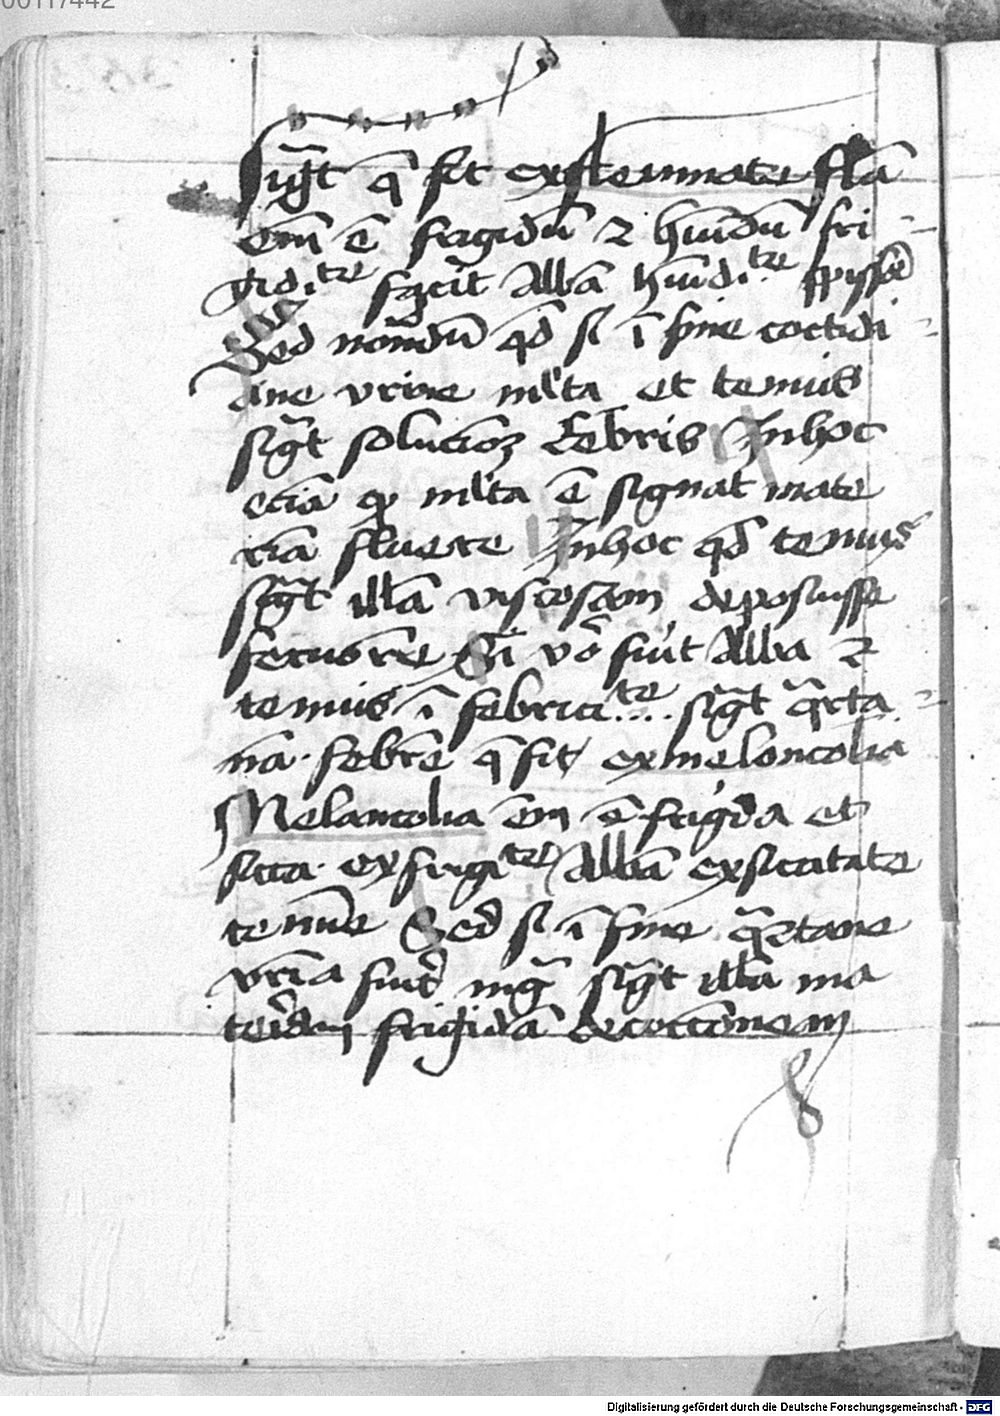 00117442
sigt̄ q̄ fit ex flemmate flā
em̄ ē frigidū ⁊ hūidū fri
gidi.tre facit albā hūidi.tre spissā
Sed nondū qd̄ si ī fine cottidi
ane vrine ml'ta et tenuis
siḡt soluciōꝫ febris In hoc
eciā qͥ ml'ta ē signat mate
riā fluere In hoc qd̄ tenuis
siḡt illā viscosam deposuisse
feruorē Si vō fūit alba ⁊
tenuis ī febrici.tre siḡt qͣrta
nā. febrē q̄ fit ex meloncolia
Melancolia em̄ ē frigida et
sicca. ex frigi.tre albā ex siccitate
tenuē Sed si ī fine qͣrtane
vrīa fuīt nigͣ siḡt illā ma
teriam frigidā decoctōnem
Digitalisierung gefördert durch die Deutsche Forschungsgemeinschaft - DFG